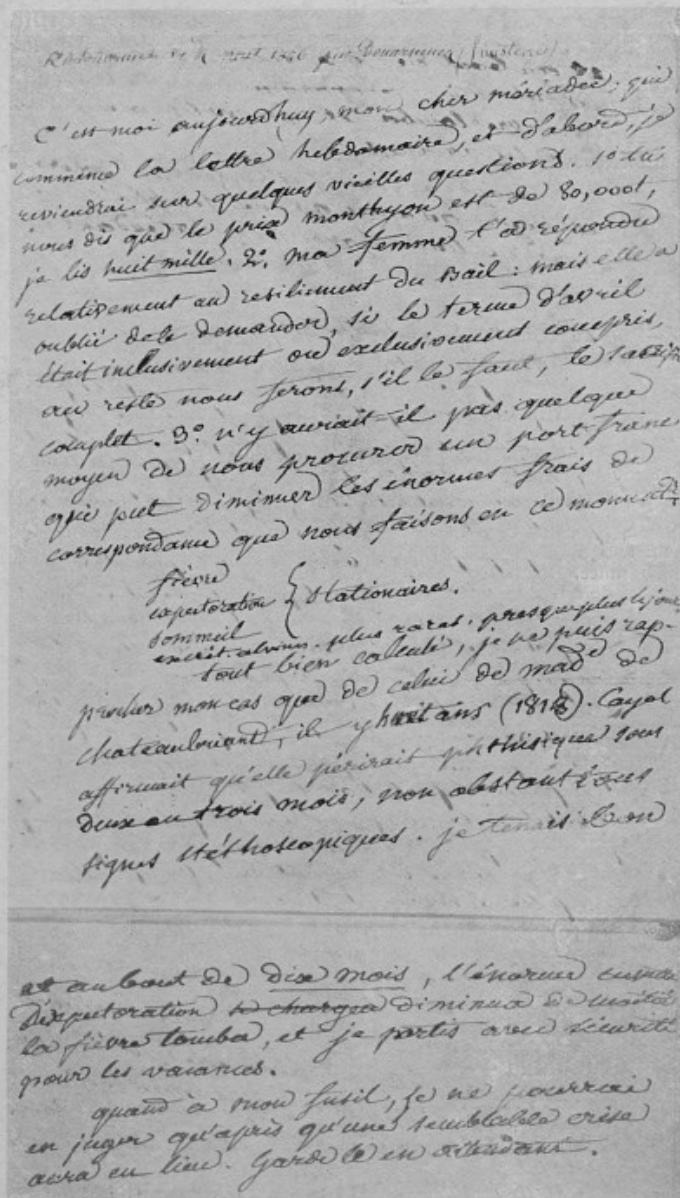 août 1826 par Douarnenez (finistère)
C'est moi aujourdhuy, mon cher mériadec, qui
commence la lettre hebdomaire, et d'abord, je
reviendrai sur quelques vieilles questions. 1° tu
nous dis que le prix monthyon est de 80,000f,
je lis huit mille. 2°. ma femme t'a répondu
relativement au resiliement du Bail : mais elle a
oublié de te demander, si le terme d'avril
était inclusivement ou exclusivement compris,
au reste nous ferons, s'il le faut, le
complet. 3° n'y aurait-il pas quelque
moyen de nous procurer un port franc
qui put diminuer les énormes frais de
correspondance que nous faisons en ce moment.
fièvre
expectoration { Stationaires.
sommeil
excrét. alvines. plus rares. presque plus
tout bien calculé, je ne puis rap-
procher mon cas que de celui de made de
chateaubriand, il y huit ans (1818). Cayol
affirmait qu'elle périrait phthisique sous
deux ou trois mois, non obstant
signes stéthoscopiques. je tenais bon
et au bout de dix mois, l'énorme
d'expectoration se chargea diminua de moitié
la fièvre tomba, et je partis avec sécurité
pour les vacances.
quand à mon fusil, je ne pourrai
en juger qu'après qu'une semblable crise
aura eu lieu. Garde le en attendant.